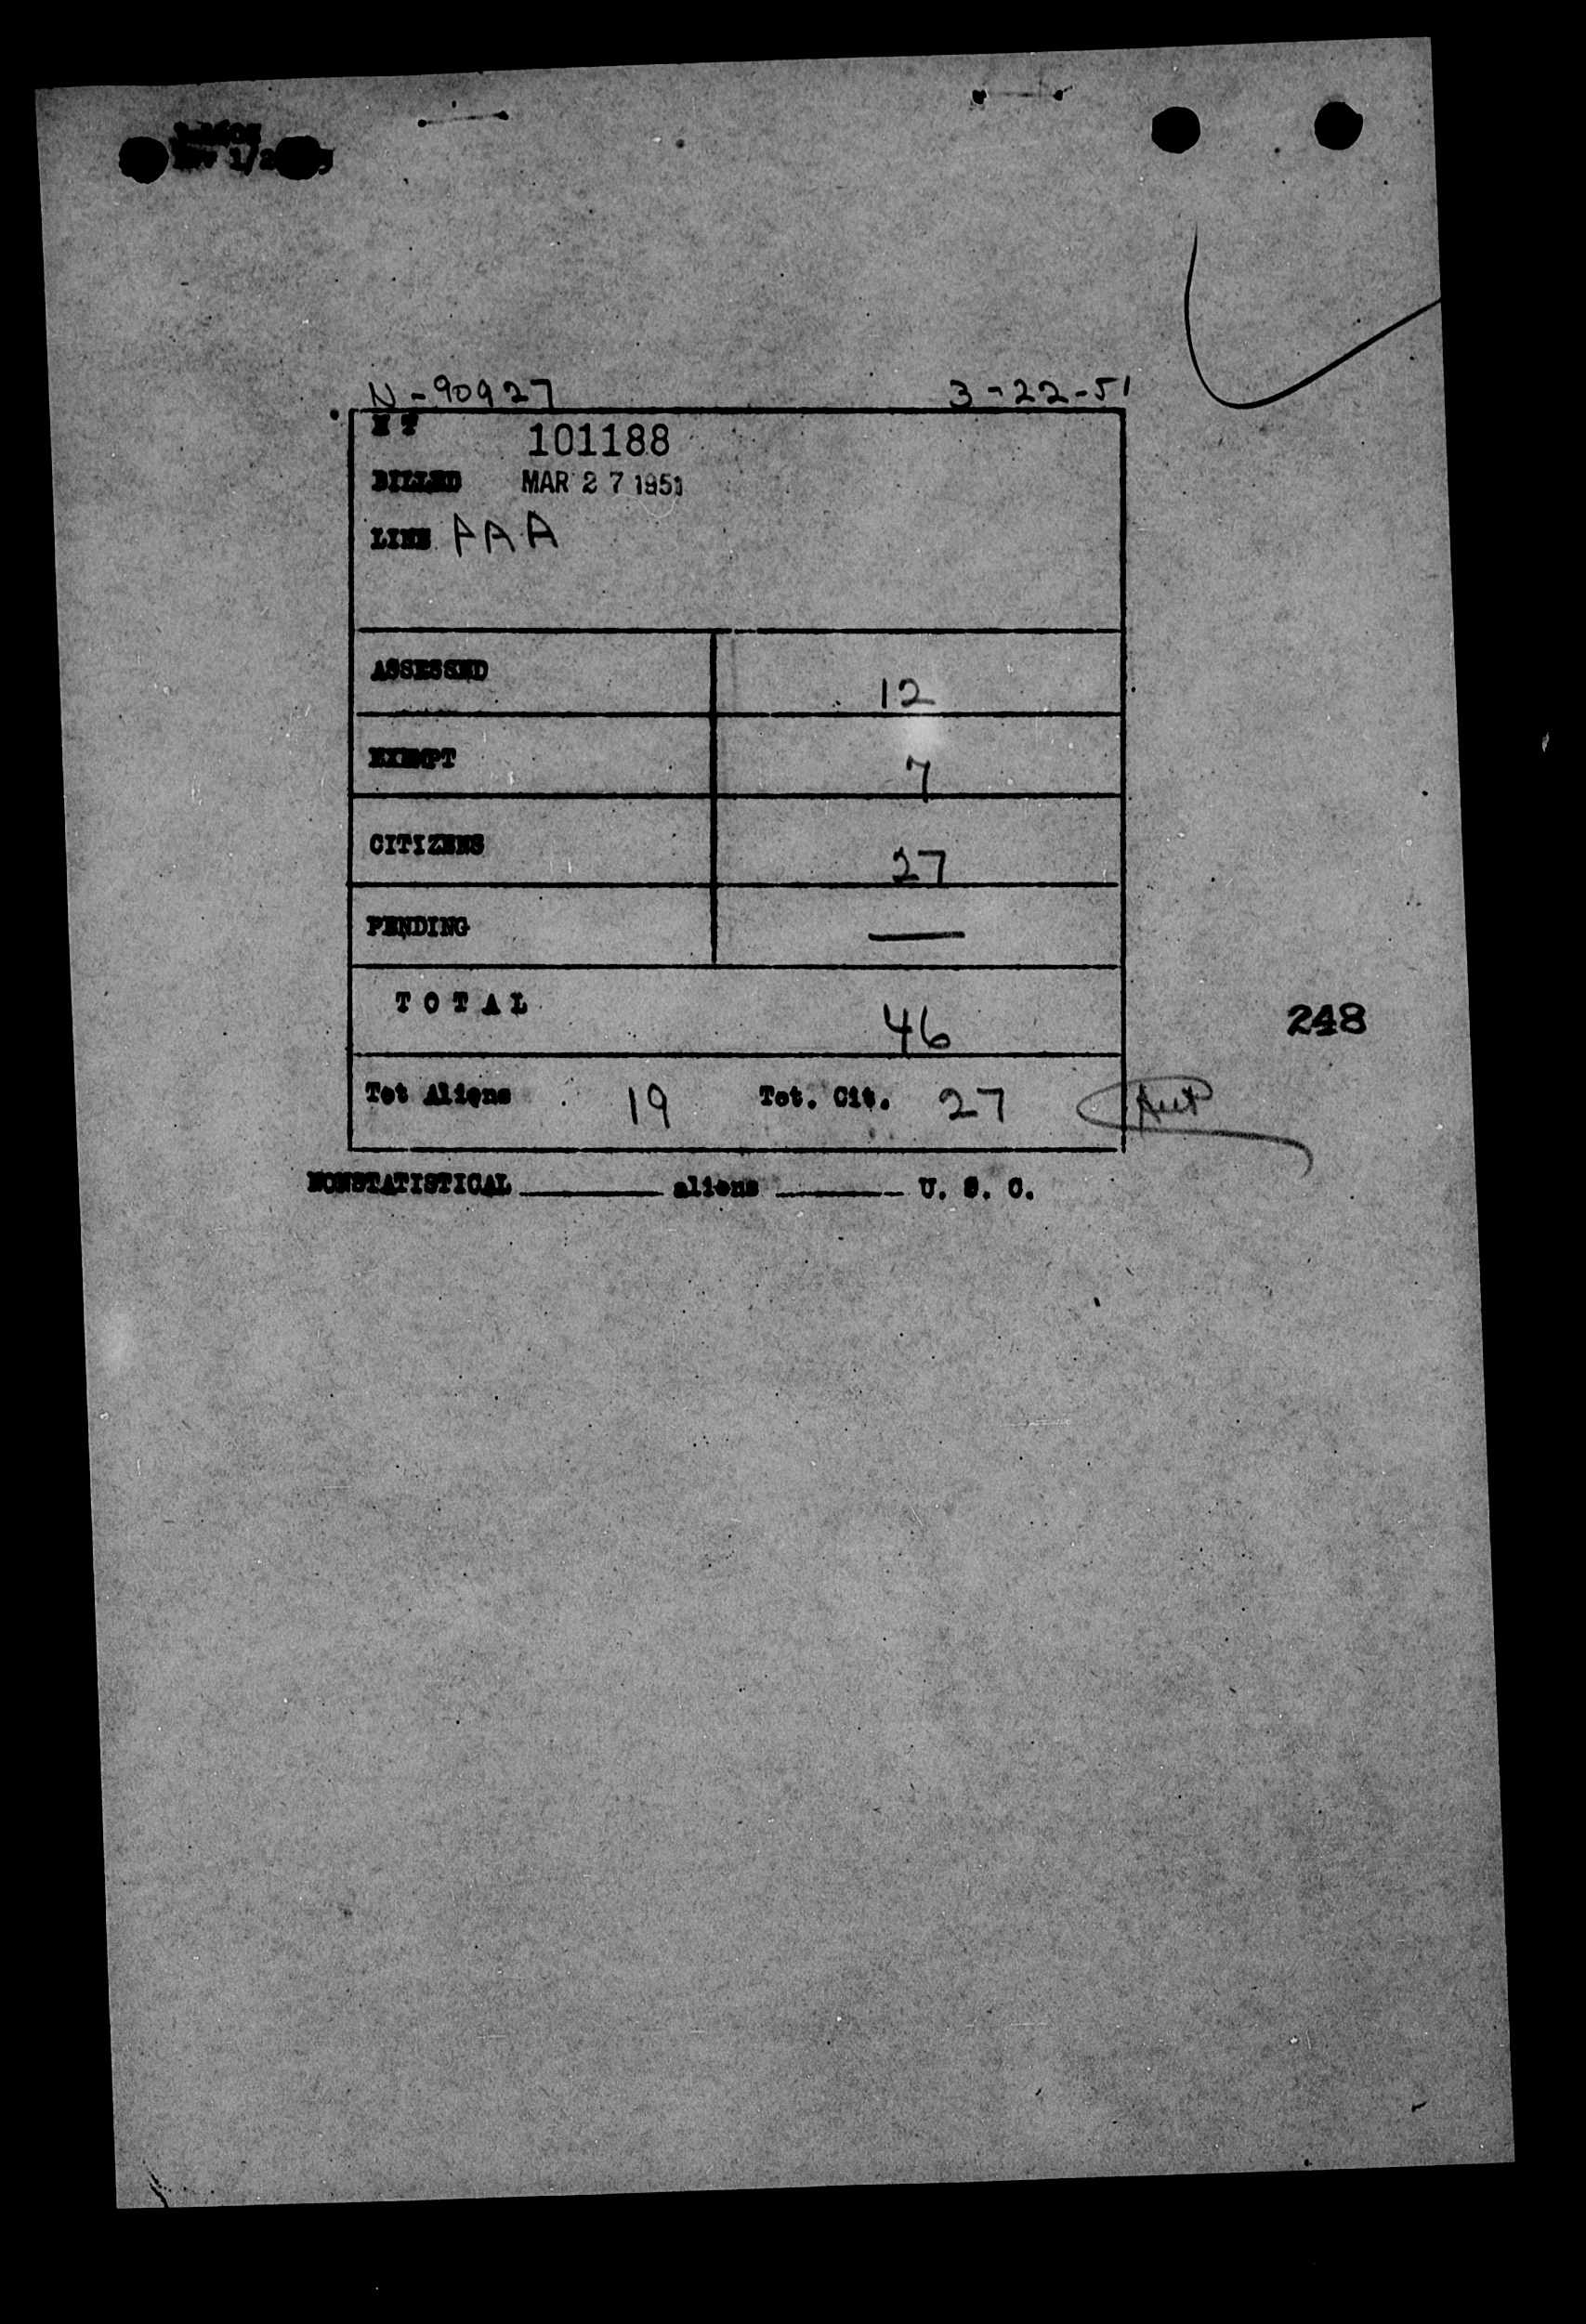 N-90927 3-22-51
101188
BILLED MAR 27 1951
LINE PAA
ASSESSED 12
EXEMPT 7
CITIZENS 27
PENDING —
TOTAL 46
248
Tot Aliens 19 Tot. Cit. 27
NONSTATISTICAL ______ aliens ______ U. S. C.